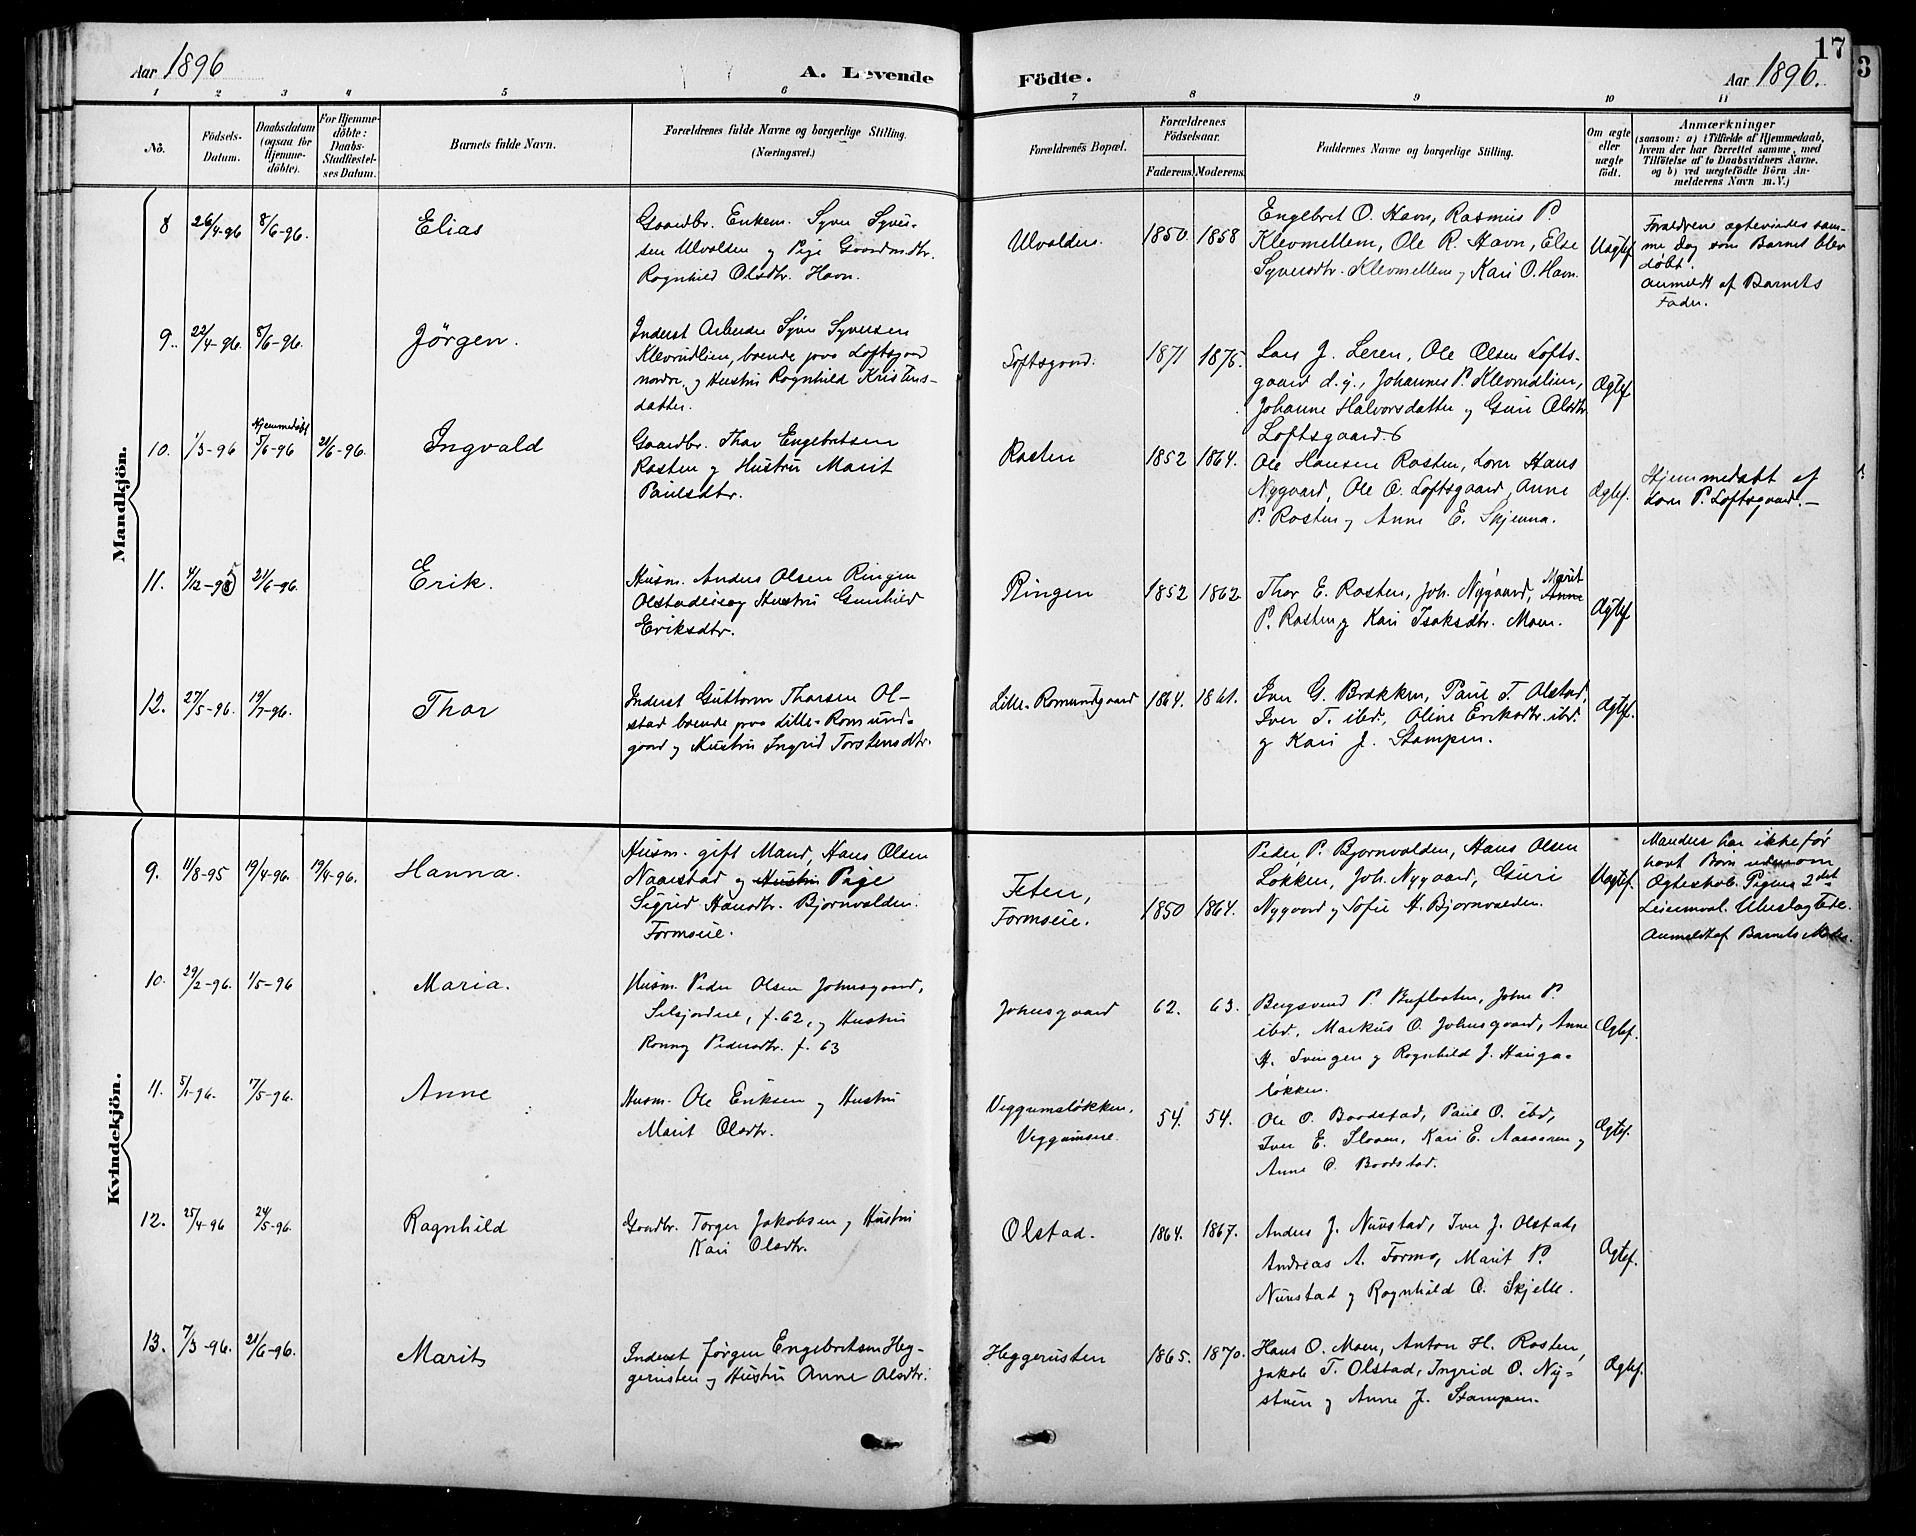 17
3
Aar 1896
A. Levende
Födte.
Aar 1896.
1 2 3 4 5 6 7 8 9 10 11
No.
Födsels-
Datum.
Daabsdatum
(ogsaa för
Hjemme-
döbte).
For Hjemme-
döbte:
Daabs-
Stadfæstel-
ses Datum.
Barnets fulde Navn.
Forældrenes fulde Navne og borgerlige Stilling.
(Næringsvei.)
Forældrenes Bopæl.
Forældrenes
Födselsaar.
Faderens.
Moderens.
Faddernes Navne og borgerlige Stilling.
Om ægte
eller
uægte
födt.
Anmærkninger
(saasom: a) i Tilfælde af Hjemmedaab,
hvem der har forrettet samme, med
Tilföielse af to Daabsvidners Navne.
og b) ved uægtefödte Börn An-
melderens Navn m.V.)
Mandkjön.
8 26/4-96 8/6-96. Elias
Gaardbr. Enkem. Syver Syver-
sen Ulvolden og Pige Gaardmdtr.
Rognhild Olsdtr. Havn.
Ulvolden.
1850. 1858
Engebret O. Havn, Rasmus P.
Klevmellem, Ole R. Havn, Else
Syversdtr. Klevmellem og Kari O. Havn.
Uægtef.
Forældrene ægteviedes sam-
me Dag som Barnet blev
døbt.
anmeldt af Barnets
Fader.
9. 22/4-96. 8/6-96. Jörgen.
Inderst Arbeider Syver Syversen
Klevrudlien, boende paa Loftsgaard
nordre, og Hustru Rognhild Kristens-
datter.
Loftsgaard.
1871 1875.
Lars J. Leren, Ole Olsen Lofts-
gaard d.y., Johannes P. Klevrudlien,
Johanne Halvorsdatter og Guri Olsdtr.
Loftsgaard.
Ægtef
10. 1/3-96 Hjemmedøbt
5/6-96 21/6-96. Ingvald
Gaardbr. Thor Engebretsen
Rosten og Hustru Marit
Paulsdtr.
Rosten
1852 1864.
Ole Hansen Rosten, Lars Hans
Nygaard, Ole O. Loftsgaard, Anne
P. Rosten og Anne E. Skjenna.
Ægtef.
Hjemmedøbt af
Lars P. Loftsgaard.—
11. 4/12-95 21/6-96. Erik.
Husm. Anders Olsen Ringen
Olstadeie og Hustru Gunhild
Eriksdtr.
Ringen
1852 1862
Thor E. Rosten, Joh. Nygaard, Marit
Anne
P. Rosten og Kari Isaksdtr. Moen.
Ægtef
12. 27/5-96. 19/7-96. Thor
Inderst Guttorm Thorsen Ol-
stad boende paa Lille-Romund-
gaard og Hustru Ingrid Torstensdtr.
Lille-Romundgaard
1864. 1861.
Iver G. Brækken, Paul T. Olstad,
Iver T. ibd., Oline Eriksdtr. ibd.
og Kari J. Stampen.
Ægtef.
Kvindekjön.
9. 11/8-95 19/4-96. 19/4-96. Hanna.
Husm. gift Mand, Hans Olsen
Naarstad og Hustru Pige
Sigrid Hansdtr. Bjørnvolden.
Formoeie.
Teten,
Formoeie.
1850 1864.
Peder P. Bjornvolden, Hans Olsen
Løkken, Joh. Nygaard, Guri
Nygaard og Sofie H. Bjørnvolden.
Uægtef.
Manden har ikke før
havt Børn udenom
Ægteskab. Pigens 2det
Leiermaal.
Anmeldt af Barnets Moder.
10. 29/2-96. 1/5-96 Maria.
Husm. Peder Olsen Johnsgaard,
Selsjordeie, f. 62, og Hustru
Ronnog Pedersdtr. f. 63
Johnsgaard
62. 63.
Bergsvend P. Buflaaten, John P.
ibd., Markus O. Johnsgaard, Anne
H. Svingen og Rognhild J. Hauga-
løkken.
Ægtef.
11. 5/1-96. 7/5-96. Anne
Husm. Ole Eriksen og Hustru
Marit Olsdtr.
Veggumsløkken,
Veggumseie.
54. 54.
Ole O. Bordstad, Paul O. ibd,
Iver E. Sloven, Kari E. Aasaaren og
Anne O. Bordstad.
Ægtef.
12. 25/4-96 24/5-96. Ragnhild
Gaardbr. Torger Jakobsen og Hustru
Kari Olsdtr.
Olstad.
1864. 1867.
Anders J. Nurstad, Iver J. Olstad,
Andreas A. Formo, Marit P.
Nurstad og Rognhild O. Skjelle.
Ægtef.
13. 7/3-96. 21/6-96. Marit
Inderst Jørgen Engebretsen Heg-
gerusten og Hustru Anne Olsdtr.
Heggerusten
1865. 1870.
Hans O. Moen, Anton H. Rosten,
Jakob T. Olstad, Ingrid O. Ny-
stuen og Anne J. Stampen.
Ægtef.